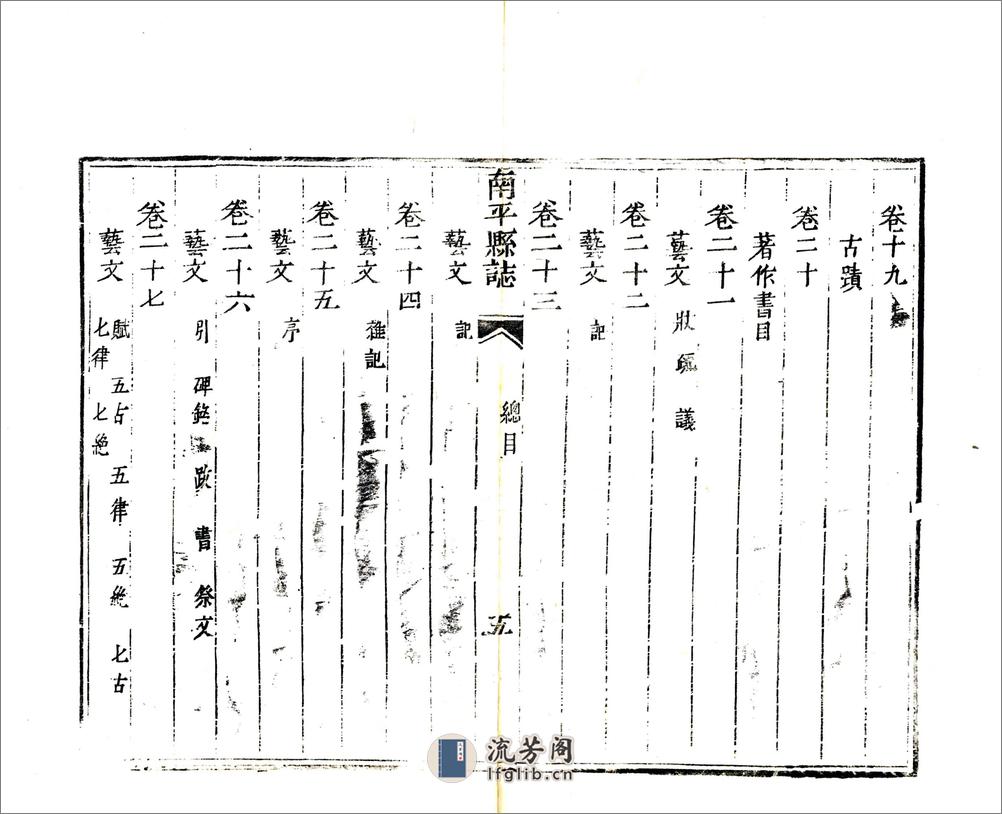 卷十九
古蹟
卷二十
著作書目
卷二十一
藝文 狀 疏 議
卷二十二
藝文 記
卷二十三
南平縣誌 總目 五
藝文 記
卷二十四
藝文 雜記
卷二十五
藝文 序
卷二十六
藝文 引 碑銘 跋 書 祭文
卷二十七
藝文 賦 五古 五律 五絶 七古
七律 七絶
流芳阁
lfglib.cn